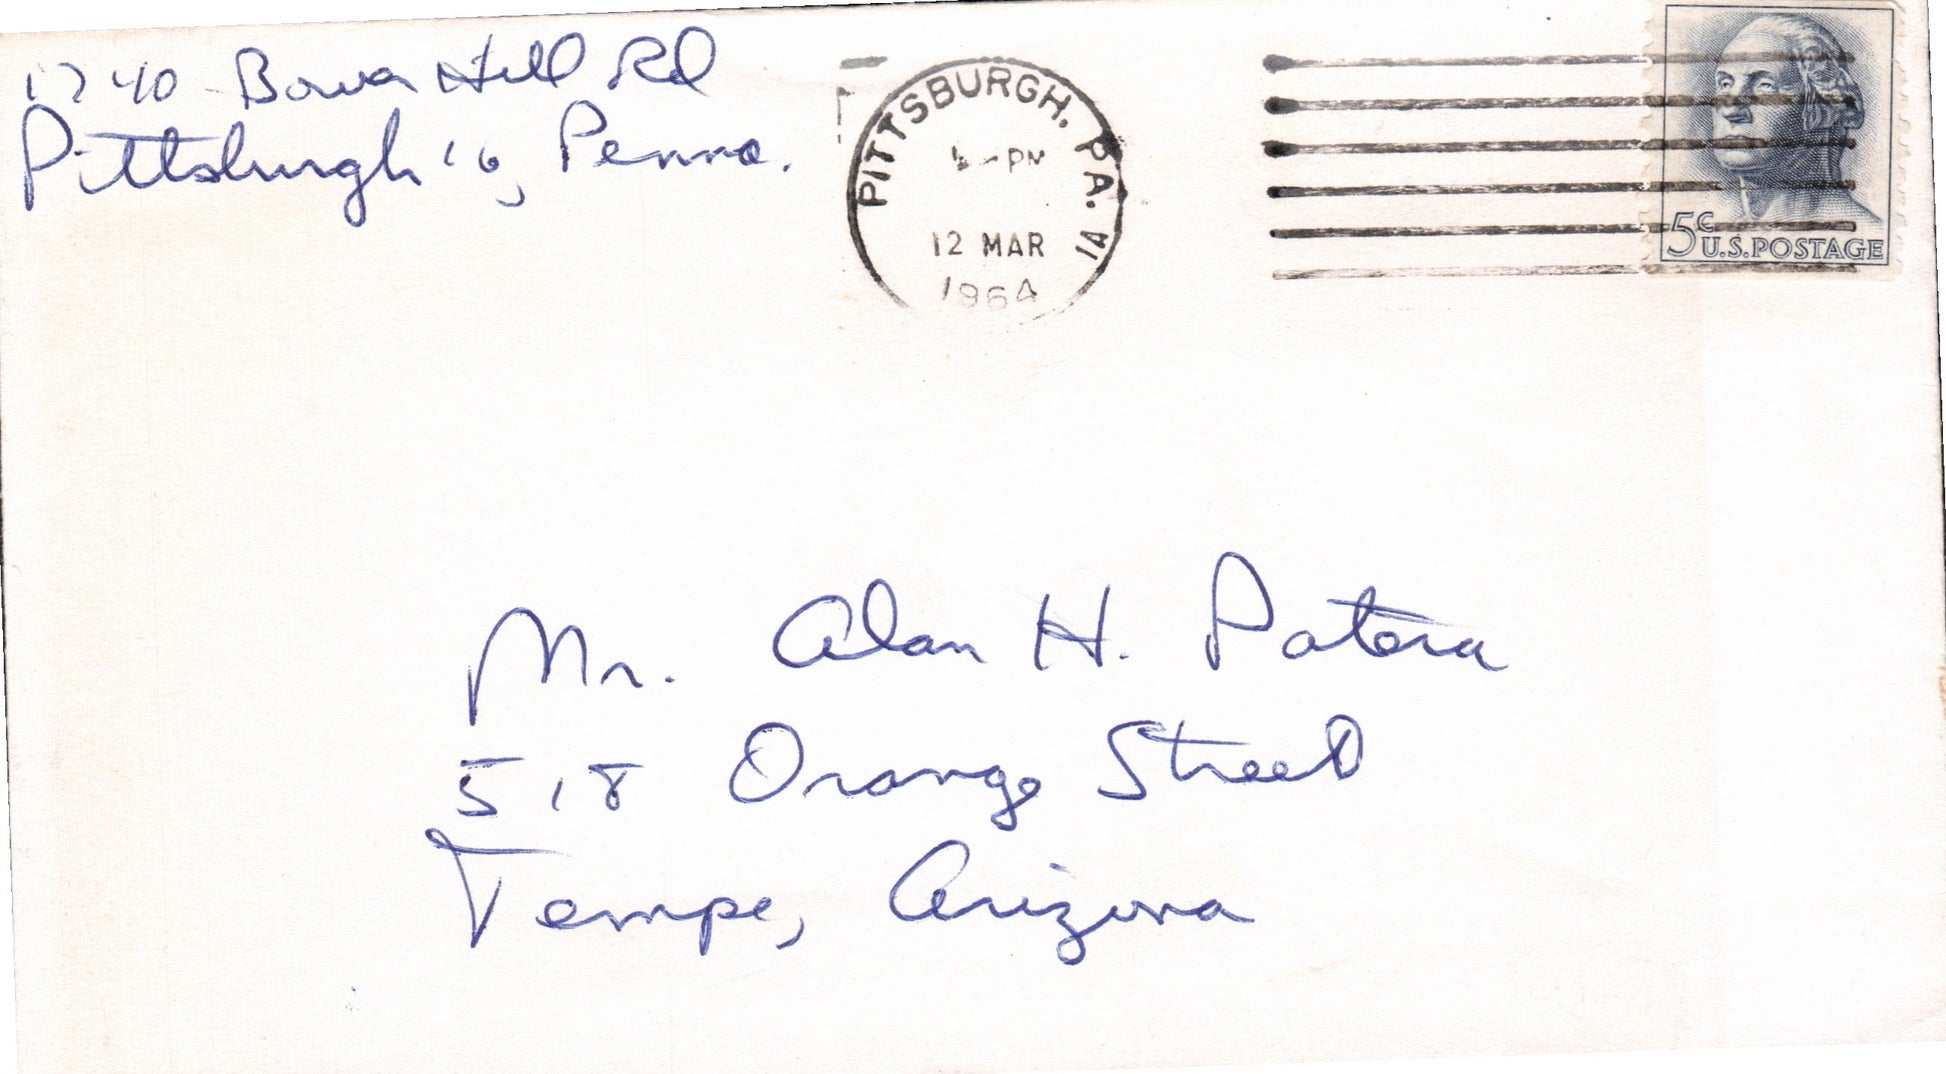 1740 Bower Hill Rd
Pittsburgh 16, Penna.
PITTSBURGH, PA. 14
PM
12 MAR
1964
5c
U.S. POSTAGE
Mr. Alan H. Patera
518 Orange Street
Tempe, Arizona